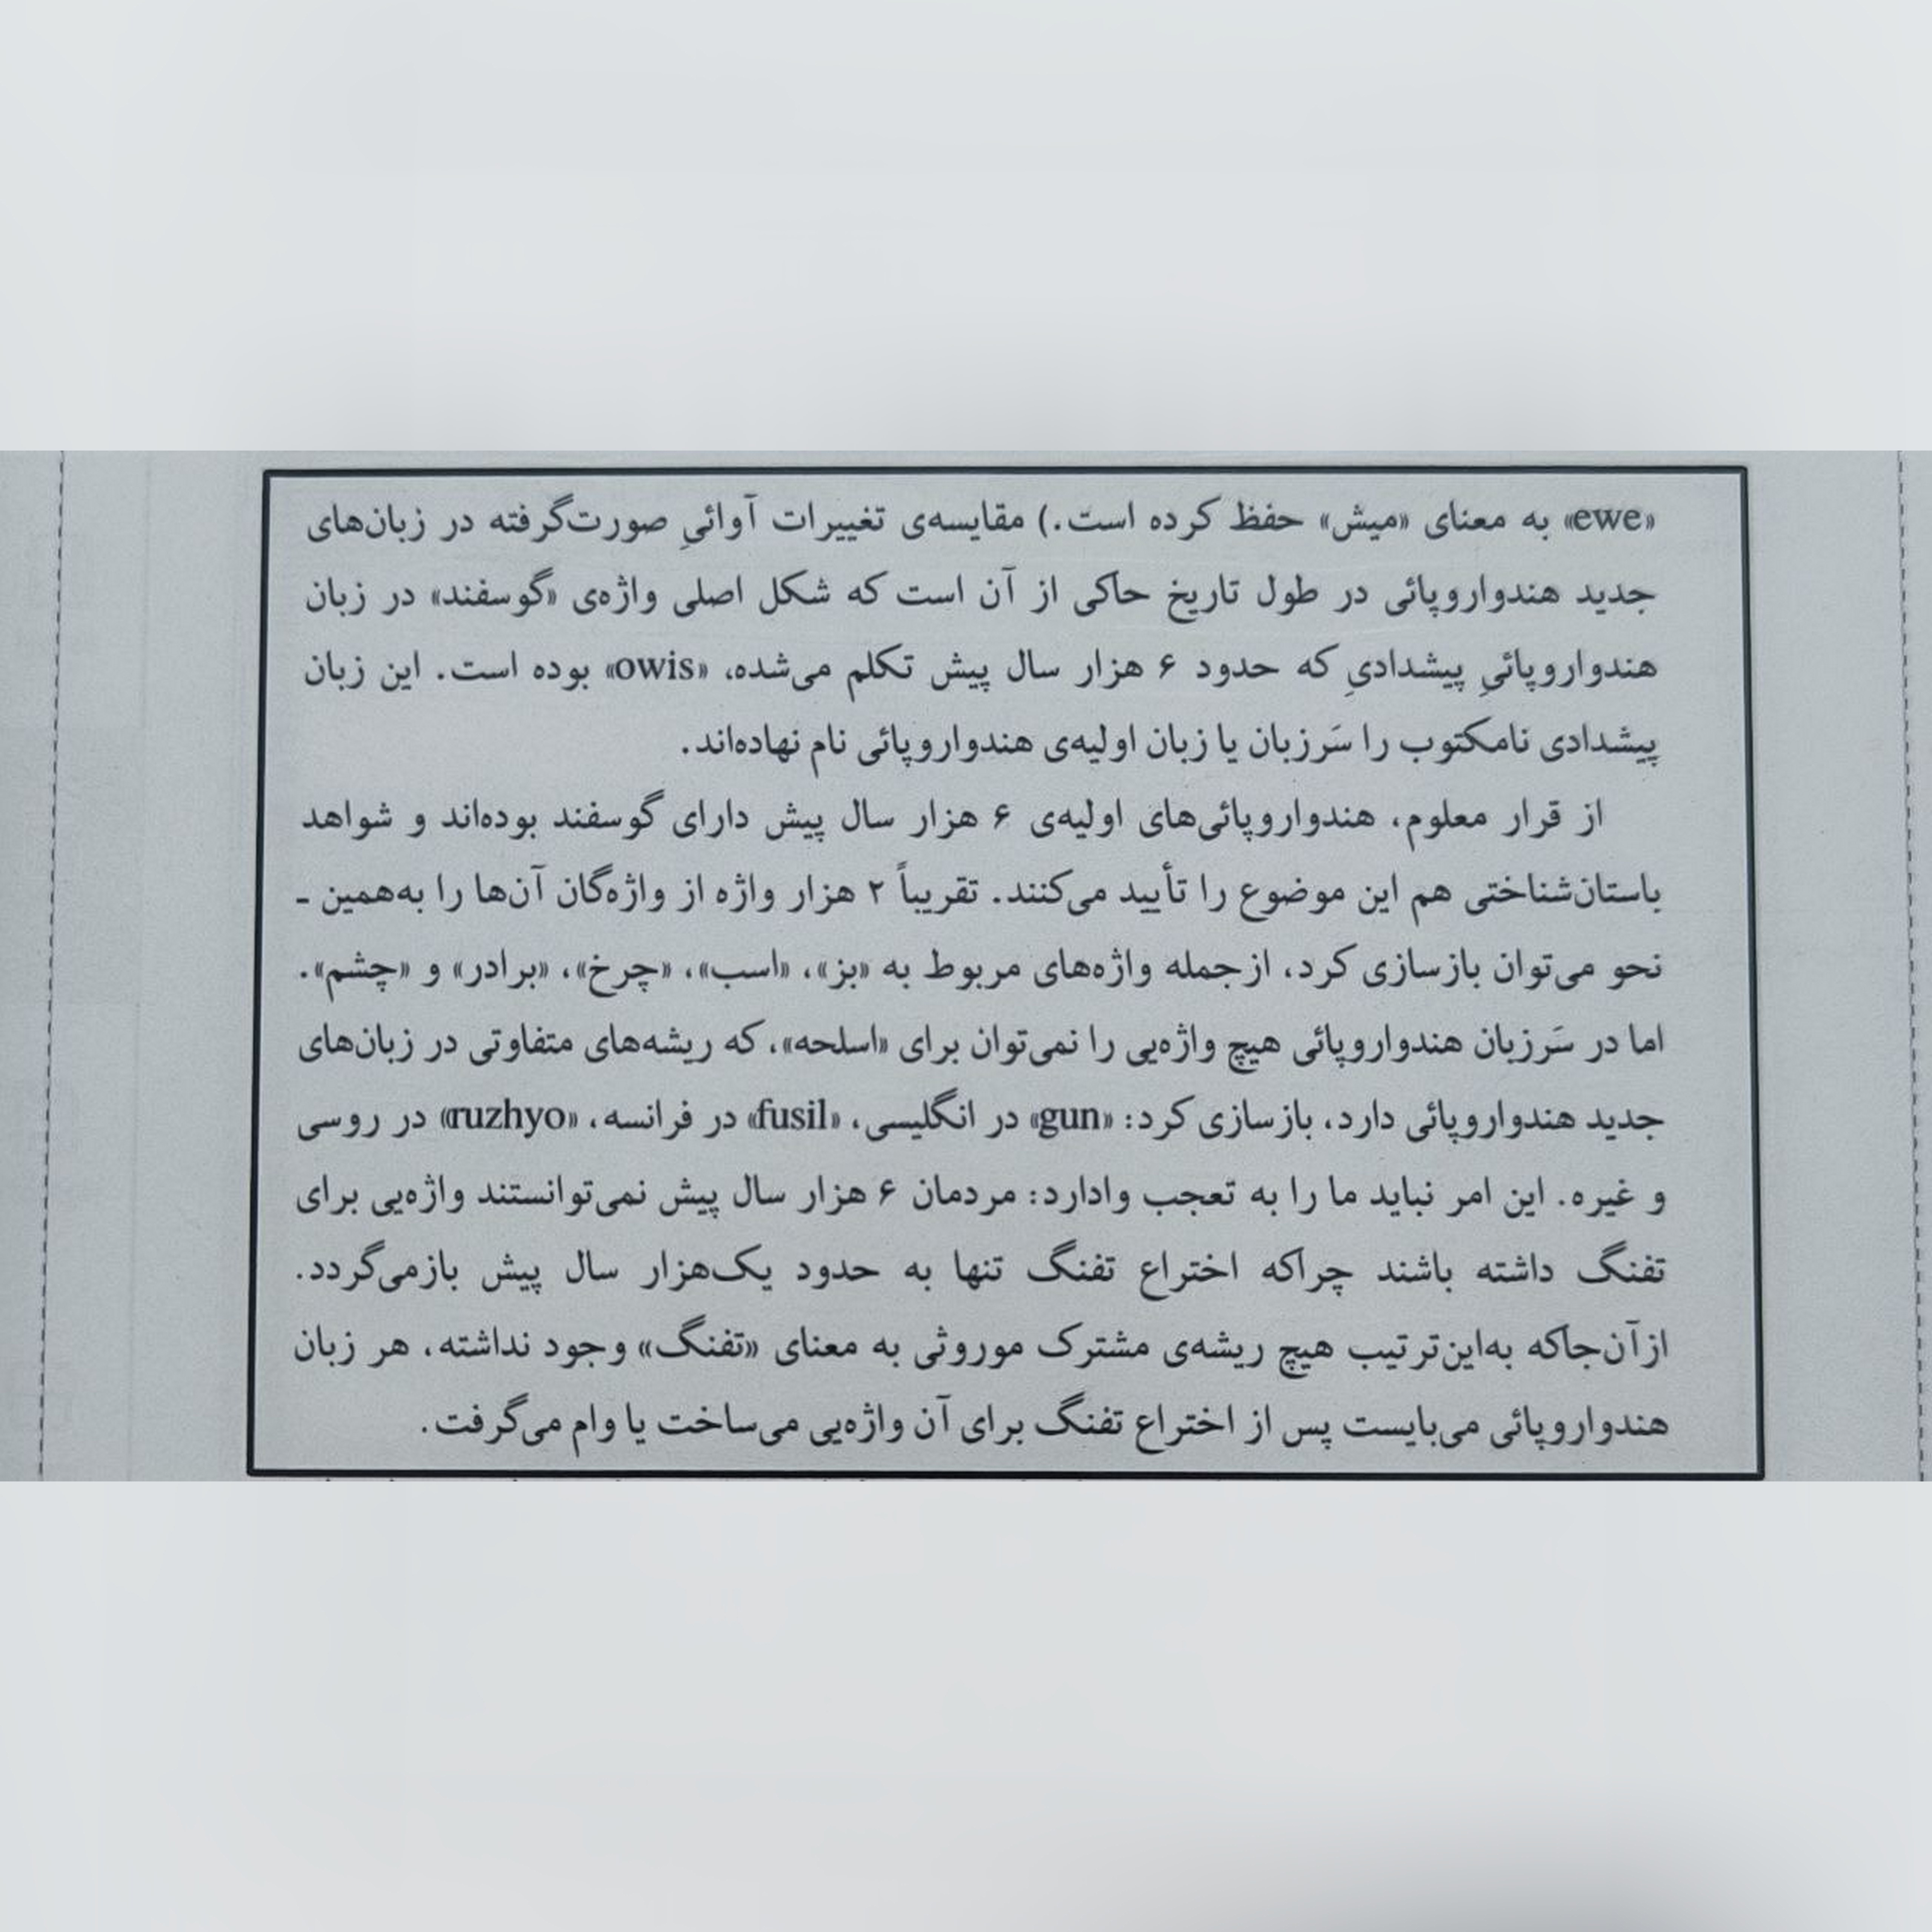 «ewe» به معنای «میش» حفظ کرده است.) مقایسه‌ی تغییرات آوائیِ صورت‌گرفته در زبان‌های
جدید هندواروپائی در طول تاریخ حاکی از آن است که شکل اصلی واژه‌ی «گوسفند» در زبان
هندواروپائیِ پیشدادیِ که حدود ۶ هزار سال پیش تکلم می‌شده، «owis» بوده است. این زبان
پیشدادی نامکتوب را سَرزبان یا زبان اولیه‌ی هندواروپائی نام نهاده‌اند.
از قرار معلوم، هندواروپائی‌های اولیه‌ی ۶ هزار سال پیش دارای گوسفند بوده‌اند و شواهد
باستان‌شناختی هم این موضوع را تأیید می‌کنند. تقریباً ۲ هزار واژه از واژه‌گان آن‌ها را به‌همین ـ
نحو می‌توان بازسازی کرد، ازجمله واژه‌های مربوط به «بز»، «اسب»، «چرخ»، «برادر» و «چشم».
اما در سَرزبان هندواروپائی هیچ واژه‌یی را نمی‌توان برای «اسلحه»، که ریشه‌های متفاوتی در زبان‌های
جدید هندواروپائی دارد، بازسازی کرد: «gun» در انگلیسی، «fusil» در فرانسه، «ruzhyo» در روسی
و غیره. این امر نباید ما را به تعجب وادارد: مردمان ۶ هزار سال پیش نمی‌توانستند واژه‌یی برای
تفنگ داشته باشند چراکه اختراع تفنگ تنها به حدود یک‌هزار سال پیش بازمی‌گردد.
ازآن‌جاکه به‌این‌ترتیب هیچ ریشه‌ی مشترک موروثی به معنای «تفنگ» وجود نداشته، هر زبان
هندواروپائی می‌بایست پس از اختراع تفنگ برای آن واژه‌یی می‌ساخت یا وام می‌گرفت.